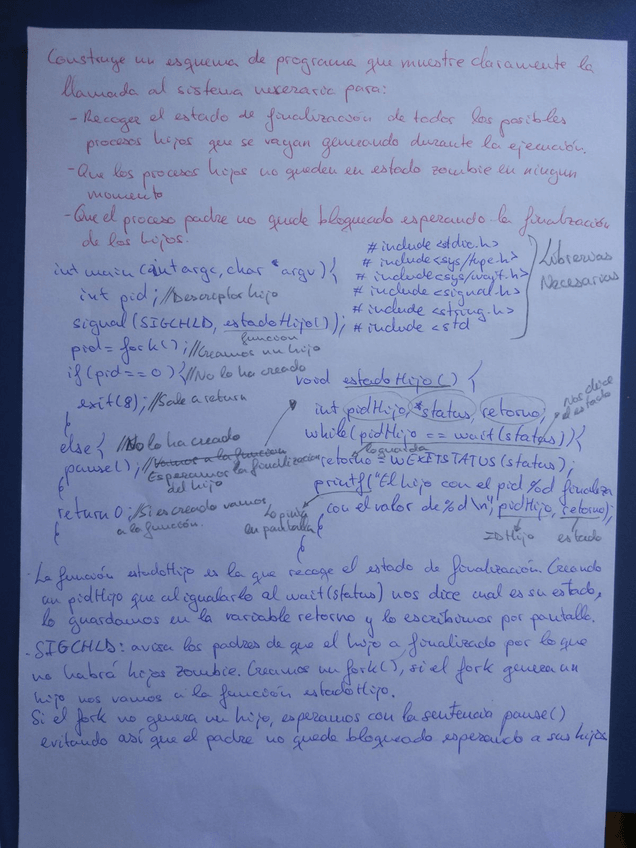 Construye un esquema de programa que muestre claramente la
llamada al sistema necesaria para:
- Recoger el estado de finalización de todos los posibles
procesos hijos que se vayan generando durante la ejecución.
- Que los procesos hijos no queden en estado zombie en ningun
momento
- Que el proceso padre no quede bloqueado esperando la finalización
de los hijos.
#include <stdio.h>
#include <sys/type.h>
#include <sys/wait.h>
#include <signal.h>
#include <string.h>
#include <std
Librerias
Necesarias
int main (int argc, char *argv) {
int pid; //Descriptor hijo
signal (SIGCHLD, estadoHijo());
función
pid = fork(); //Creamos un hijo
if (pid == 0) { //No lo ha creado
exit(8); //Sale a return
}
else { //No lo ha creado
pause(); //Vamos a la funcion
Esperamos la finalización
del hijo
}
return 0; //Si es creado vamos
a la función.
}
void estadoHijo() {
int pidHijo, *status, retorno;
nos dice
el estado
while (pidHijo == wait(status)) {
lo guarda
retorno = WEXITSTATUS (status);
printf("El hijo con el pid %d finaliza
con el valor de %d \n", pidHijo, retorno);
Lo pinta
en pantalla
IDHijo
estado
}
}
- La función estadoHijo es la que recoge el estado de finalización. Creando
un pidHijo que al igualarlo al wait(status) nos dice cual es su estado,
lo guardamos en la variable retorno y lo escribimos por pantalla.
- SIGCHLD: avisa los padres de que el hijo a finalizado por lo que
no habrá hijos zombie. Creamos un fork(), si el fork genera un
hijo nos vamos a la función estadoHijo.
Si el fork no genera un hijo, esperamos con la sentencia pause()
evitando así que el padre no quede bloqueado esperando a sus hijos